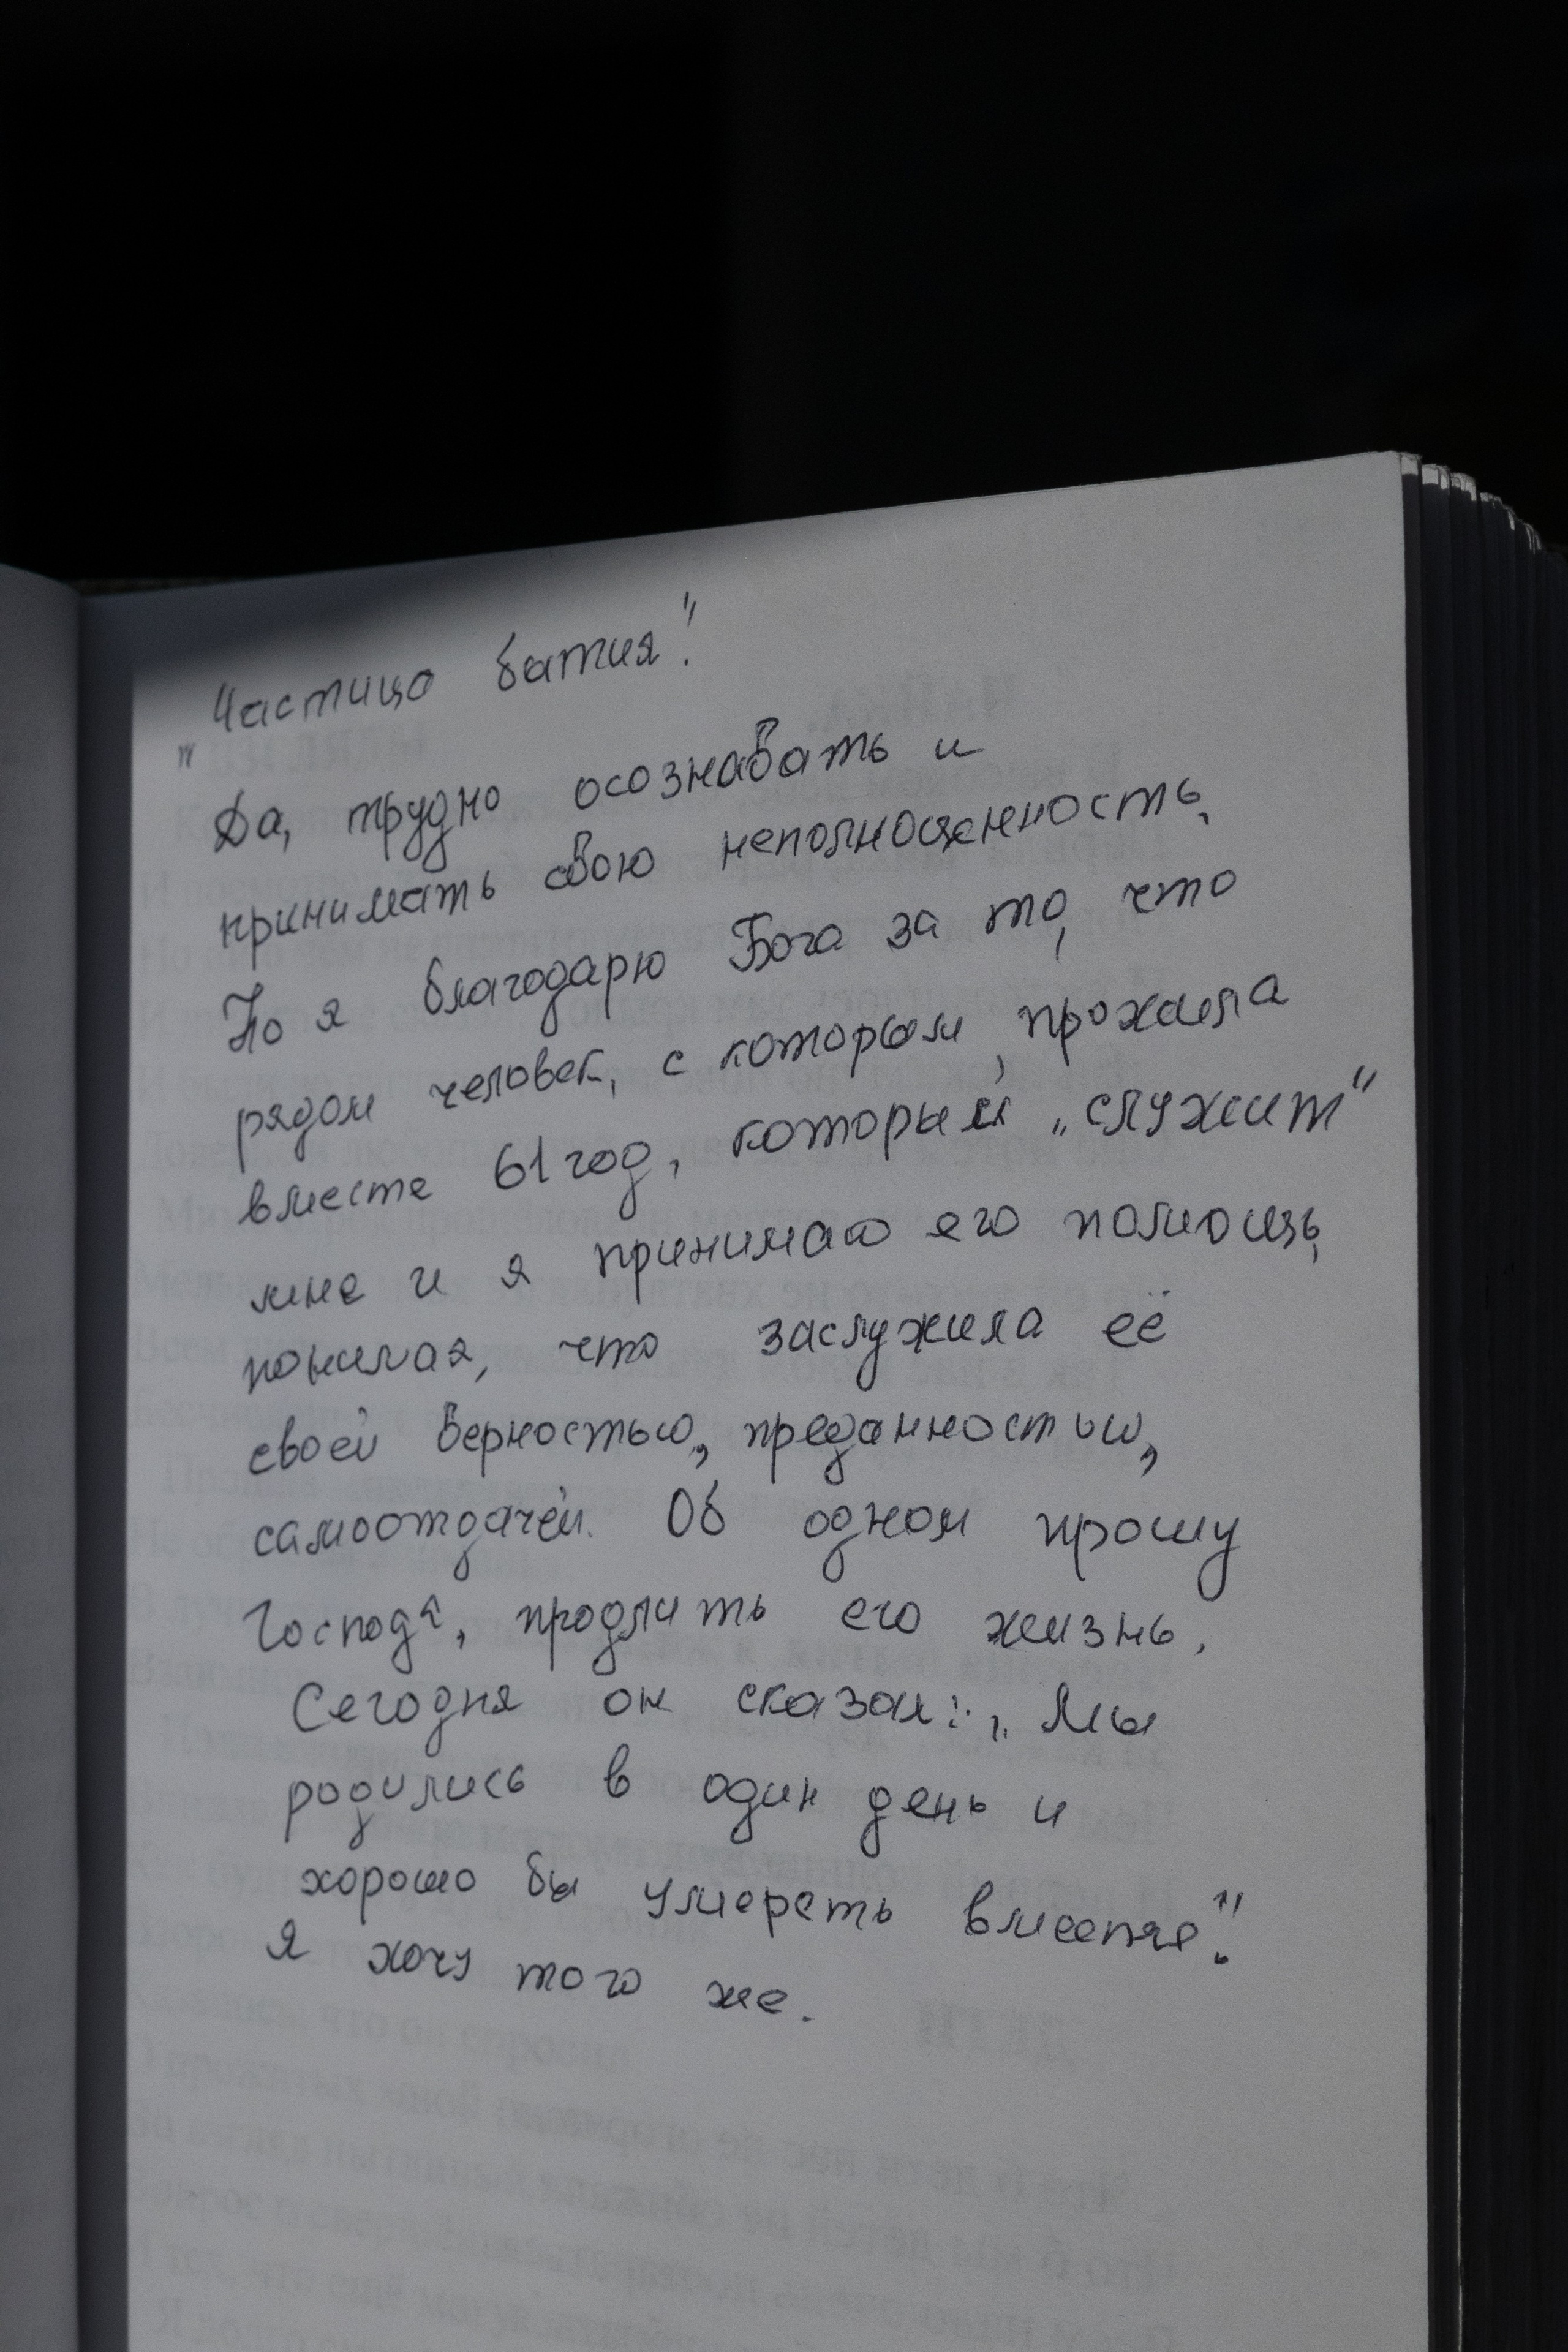 „Частица бытия".
Да, трудно осознавать и
принимать свою неполноценность,
Но я благодарю Бога за то, что
рядом человек, с которым, прожила
вместе 61 год, который „служит"
мне и я принимаю его помощь,
понимая, что заслужила её
своей верностью, преданностью,
самоотдачей. Об одном прошу
Господа, продлить его жизнь.
Сегодня он сказал: „Мы
родились в один день и
хорошо бы умереть вместе".
Я хочу того же.